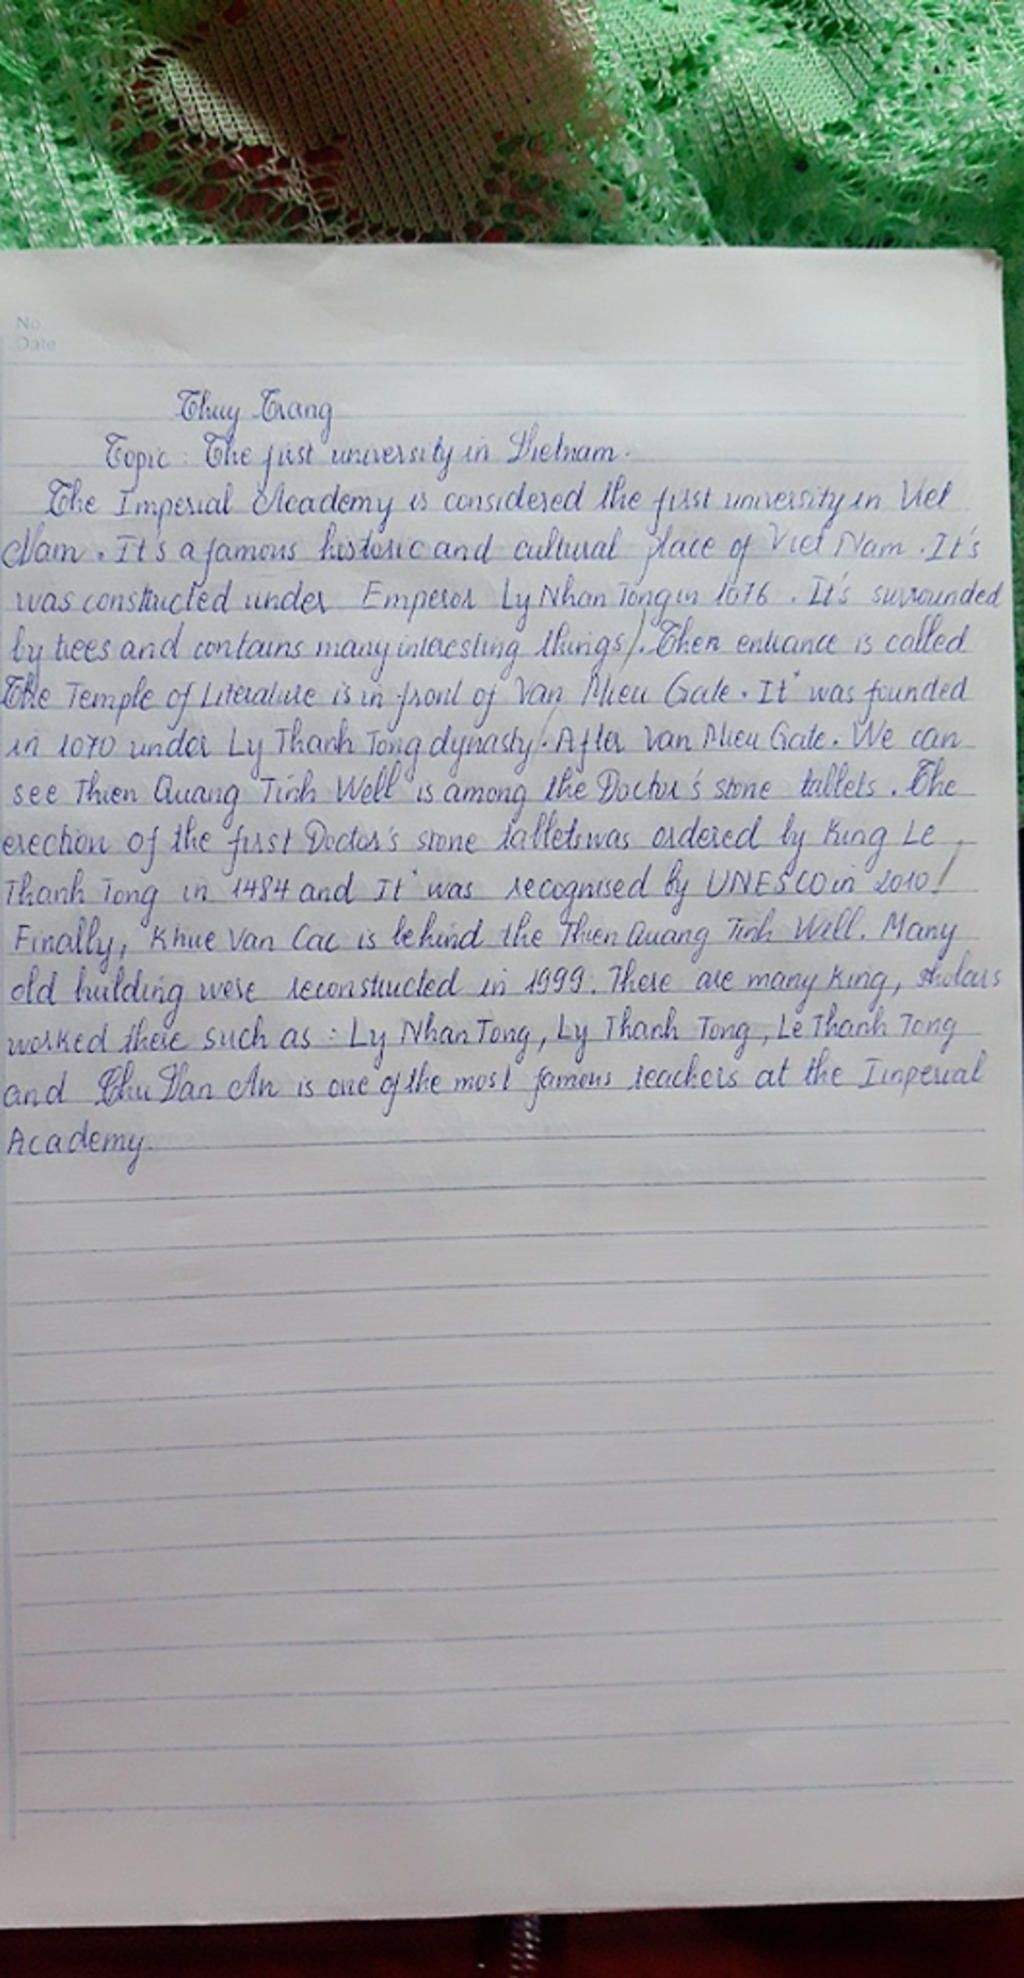 No
Date
Thuy Trang
Topic : The first university in Vietnam.
The Imperial Academy is considered the first university in Viet
Nam. It's a famous historic and cultural place of Viet Nam. It's
was constructed under Emperor Ly Nhan Tong in 1076. It's surrounded
by trees and contains many interesting things/. Then entrance is called
The Temple of Literature is in front of Van Mieu Gate. It was founded
in 1070 under Ly Thanh Tong dynasty/. After Van Mieu Gate. We can
see Thien Quang Tinh Well is among the Doctor's stone tablets. The
erection of the first Doctor's stone tablets was ordered by King Le
Thanh Tong in 1484 and It was recognised by UNESCO in 2010/
Finally, Khue Van Cac is behind the Thien Quang Tinh Well. Many
old building were reconstructed in 1999. There are many King, scholars
worked there such as : Ly Nhan Tong, Ly Thanh Tong, Le Thanh Tong
and Chu Van An is one of the most famous teachers at the Imperial
Academy.